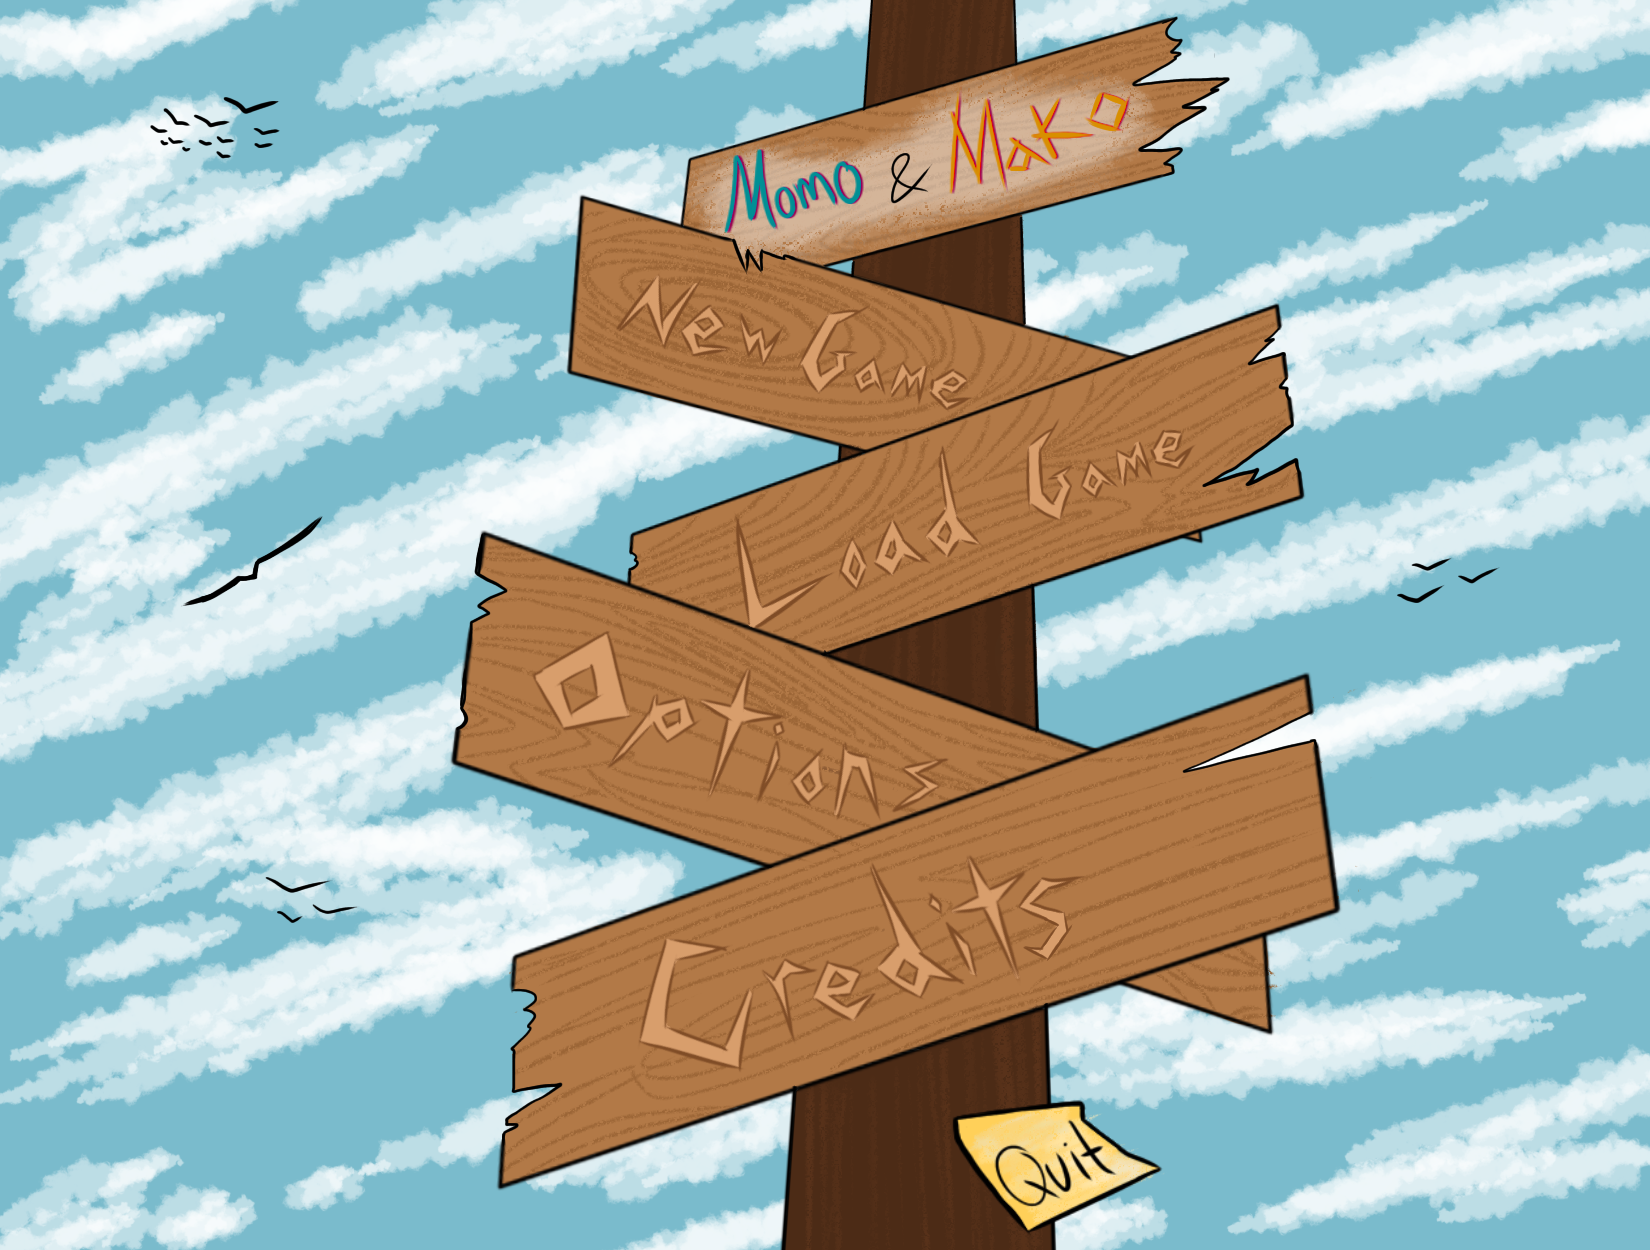 Momo & Mako
New Game
Load Game
Options
Credits
Quit